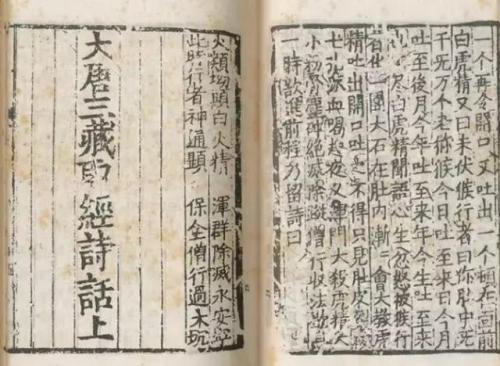 一个再令開口又吐出一个頓在面前
白虎精又曰未伏猴行者曰你肚中无
千无万个老獼猴今日吐至來日今月
吐至後月今年吐至來年今生吐至來
生也不尽白虎精聞語心生忿怒被猴行
者化一團大石在肚內漸漸會大教虎
精吐出開口吐之不得只見肚皮裂破
七孔流血喝起夜叉渾門大殺虎精大
小粉骨塵碎絕滅除蹤僧行收法歇息
一時欲進前程乃留詩曰
火類坳頭白火精 渾群除滅永安寧
此時行者神通顯 保全僧行過大坑
大唐三藏取經詩話上